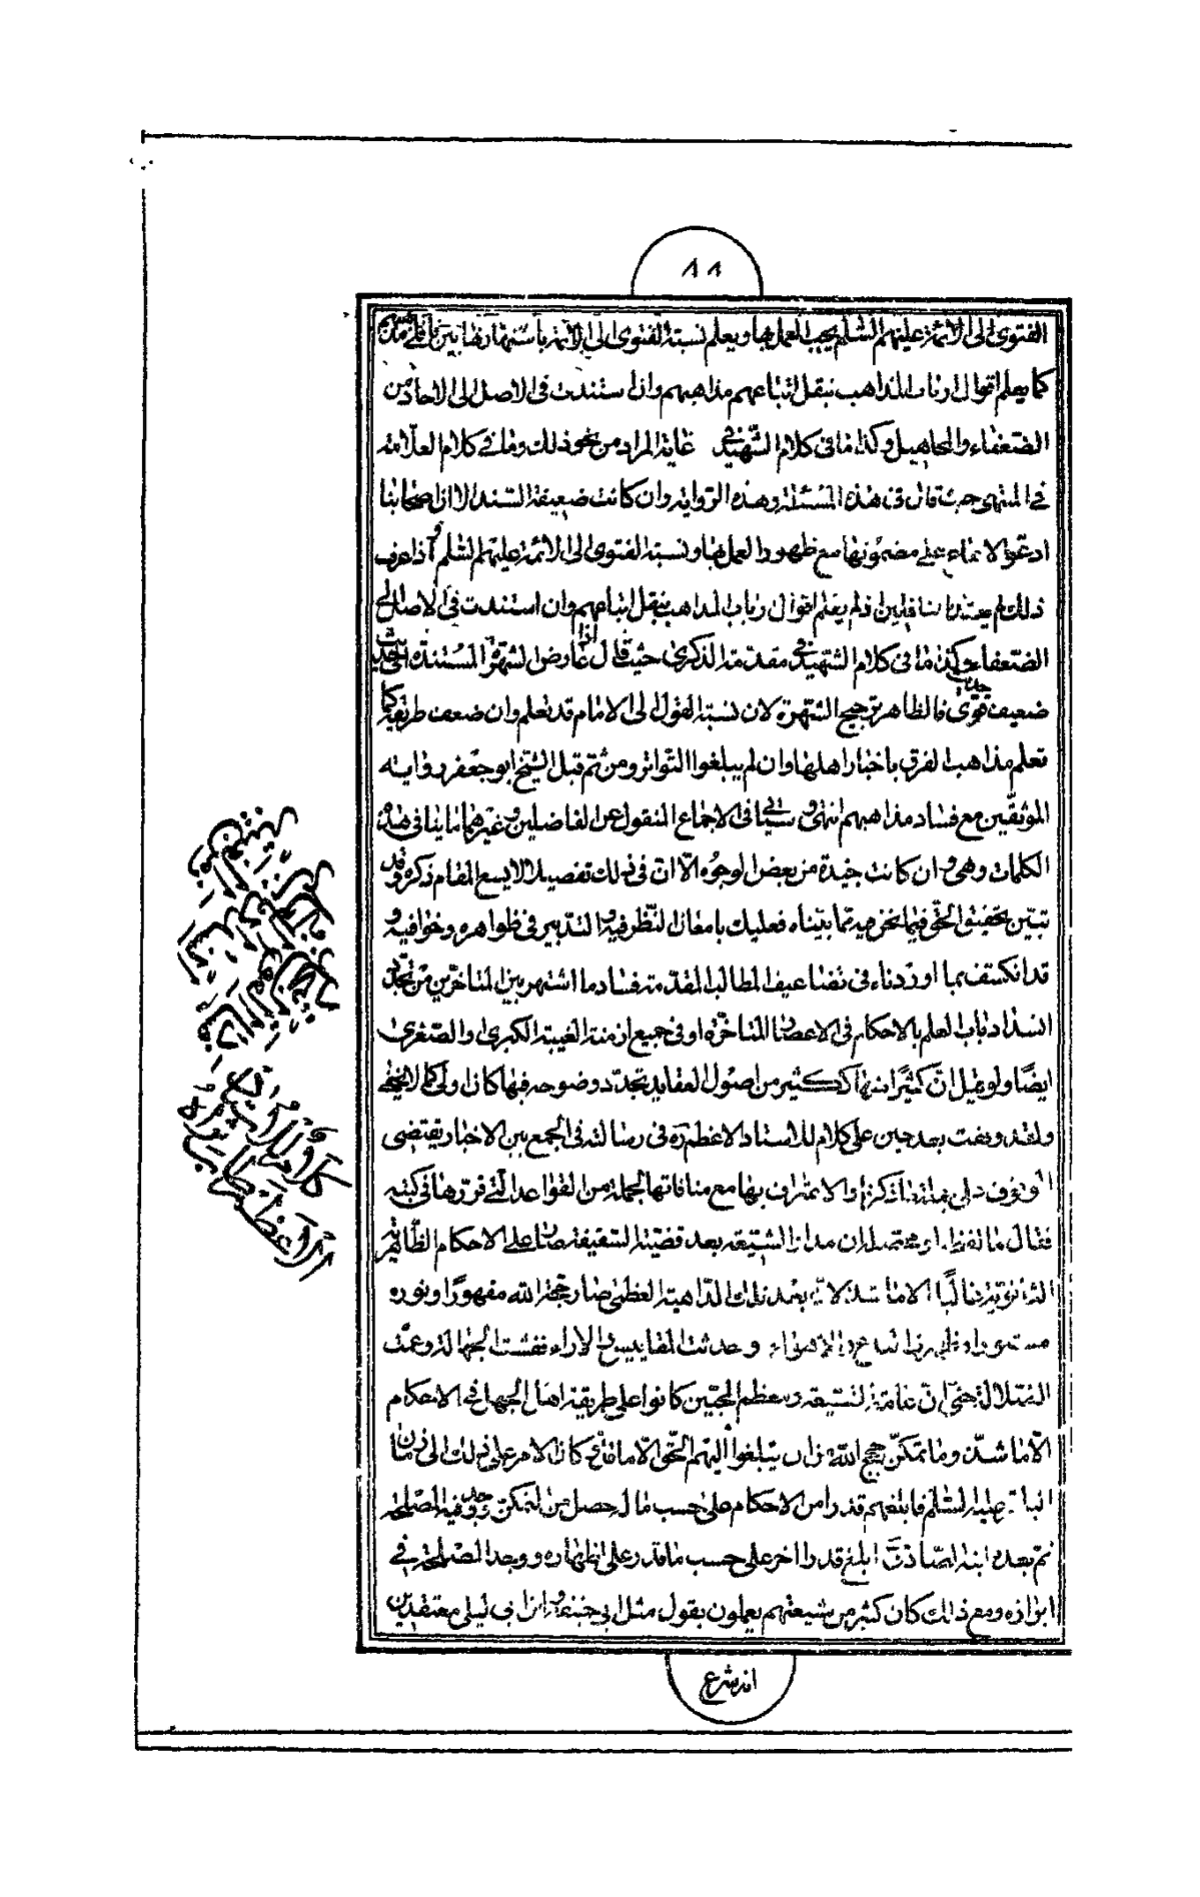 ٨٨
الفتوى الى الائمة عليهم السلم يجب العمل بها ويعلم نسبة الفتوى الى الائمة باشتهارها بين ناقلى مذهبهم
كما يعلم اقوال ارباب المذاهب بنقل اتباعهم مذاهبهم وان استندت فى الاصل الى الاحاد من
الضعفاء والمجاهيل وكذا ما فى كلام الشهيد فى غاية المراد من نحو ذلك وما فى كلام العلامة
فى المنتهى حيث قال فى هذه المسئلة وهذه الرواية وان كانت ضعيفة السند الا ان اصحابنا
ادعوا الاجماع على مضمونها مع ظهور العمل بها ونسبة الفتوى الى الائمة عليهم السلم واذا عرف
ذلك لم يعتد بالناقلين اذ لم يعلم اقوال ارباب المذاهب بنقل اتباعهم وان استندت فى الاصل الى
الضعفاء وكذا ما فى كلام الشهيد فى مقدمة الذكرى حيث قال اذا عارض الشهرة المستندة الى حديث
ضعيف حديث قوى فالظاهر ترجيح الشهرة لان نسبة القول الى الامام قد تعلم وان ضعف طريقه كما
تعلم مذاهب الفرق باخبار اهلها وان لم يبلغوا التواتر ومن ثم قبل الشيخ ابو جعفر رواية
الموثقين مع فساد مذاهبهم انتهى وسياتى فى الاجماع المنقول عن الفاضلين وغيرهما ما ينافى هذه
الكلمات وهى وان كانت جيدة من بعض الوجوه الا ان فى ذلك تفصيلا لا يسع المقام ذكره وقد
تبين تحقيق الحق فيما نحن فيه مما بيناه فعليك بامعان النظر فيه والتدبر فى ظواهره وخوافيه و
قد انكشف بما اوردناه فى تضاعيف المطالب المتقدمة فساد ما اشتهر بين المتاخرين من تجدد
انسداد باب العلم بالاحكام فى الاعصار المتاخرة او فى جميع ازمنة الغيبة الكبرى والصغرى
ايضا ولو قيل ان كثيرا منها ككثير من اصول العقايد تجدد وضوحه فيها كان اولى كما لا يخفى
ولقد وقفت بعد حين على كلام للاستاد الاعظم ره فى رسالته فى الجمع بين الاخبار يقتضى
الوقوف على والاعتراف بها مع منافاتها لجملة من القواعد التى قررها فى كتبه
فقال ما لفظه ان مدار الشيعة بعد قضية السقيفة صار على الاحكام الظاهرية
غالبا الا ما شذ لان بعد تلك الداهية العظمى صار حجة الله مقهورا ونوره
مستورا وحدثت المقاييس والاراء تفشت الجهالة وعمت
الضلالة حتى ان عامة الشيعة ومعظم المحبين كانوا على طريقة اهل الجهل فى الاحكام
الا ما شذ وما تمكن حجج الله من ان يبلغوا اليهم الحق الا ما كان الامر على ذلك الى زمان
الباقر عليه السلم فابلغهم قدرا من الاحكام على حسب ما حصل من التمكن ووجد فيه المصلحة
ثم بعده ابنه الصادق ابلغ قدرا اخر على حسب ما قدر على اظهاره ووجد المصلحة فى
ابرازه ومع ذلك كان كثير من شيعتهم يعملون بقول مثل ابى حنيفة وابن ابى ليلى معتقدين
انه شرع